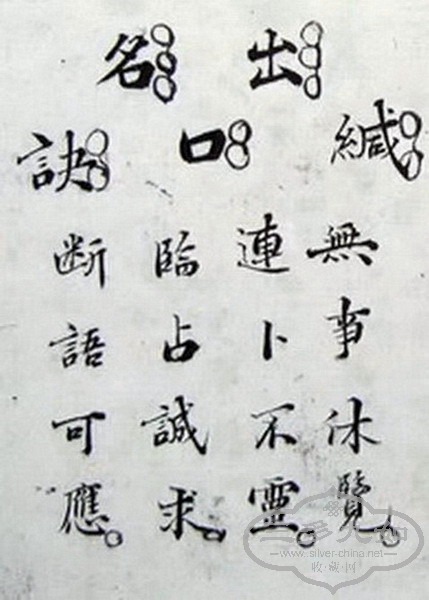 出名
緘口訣
無事休覽。
連卜不靈。
臨占誠求。
断語可應。
www.silver-china.net
收·藏·网